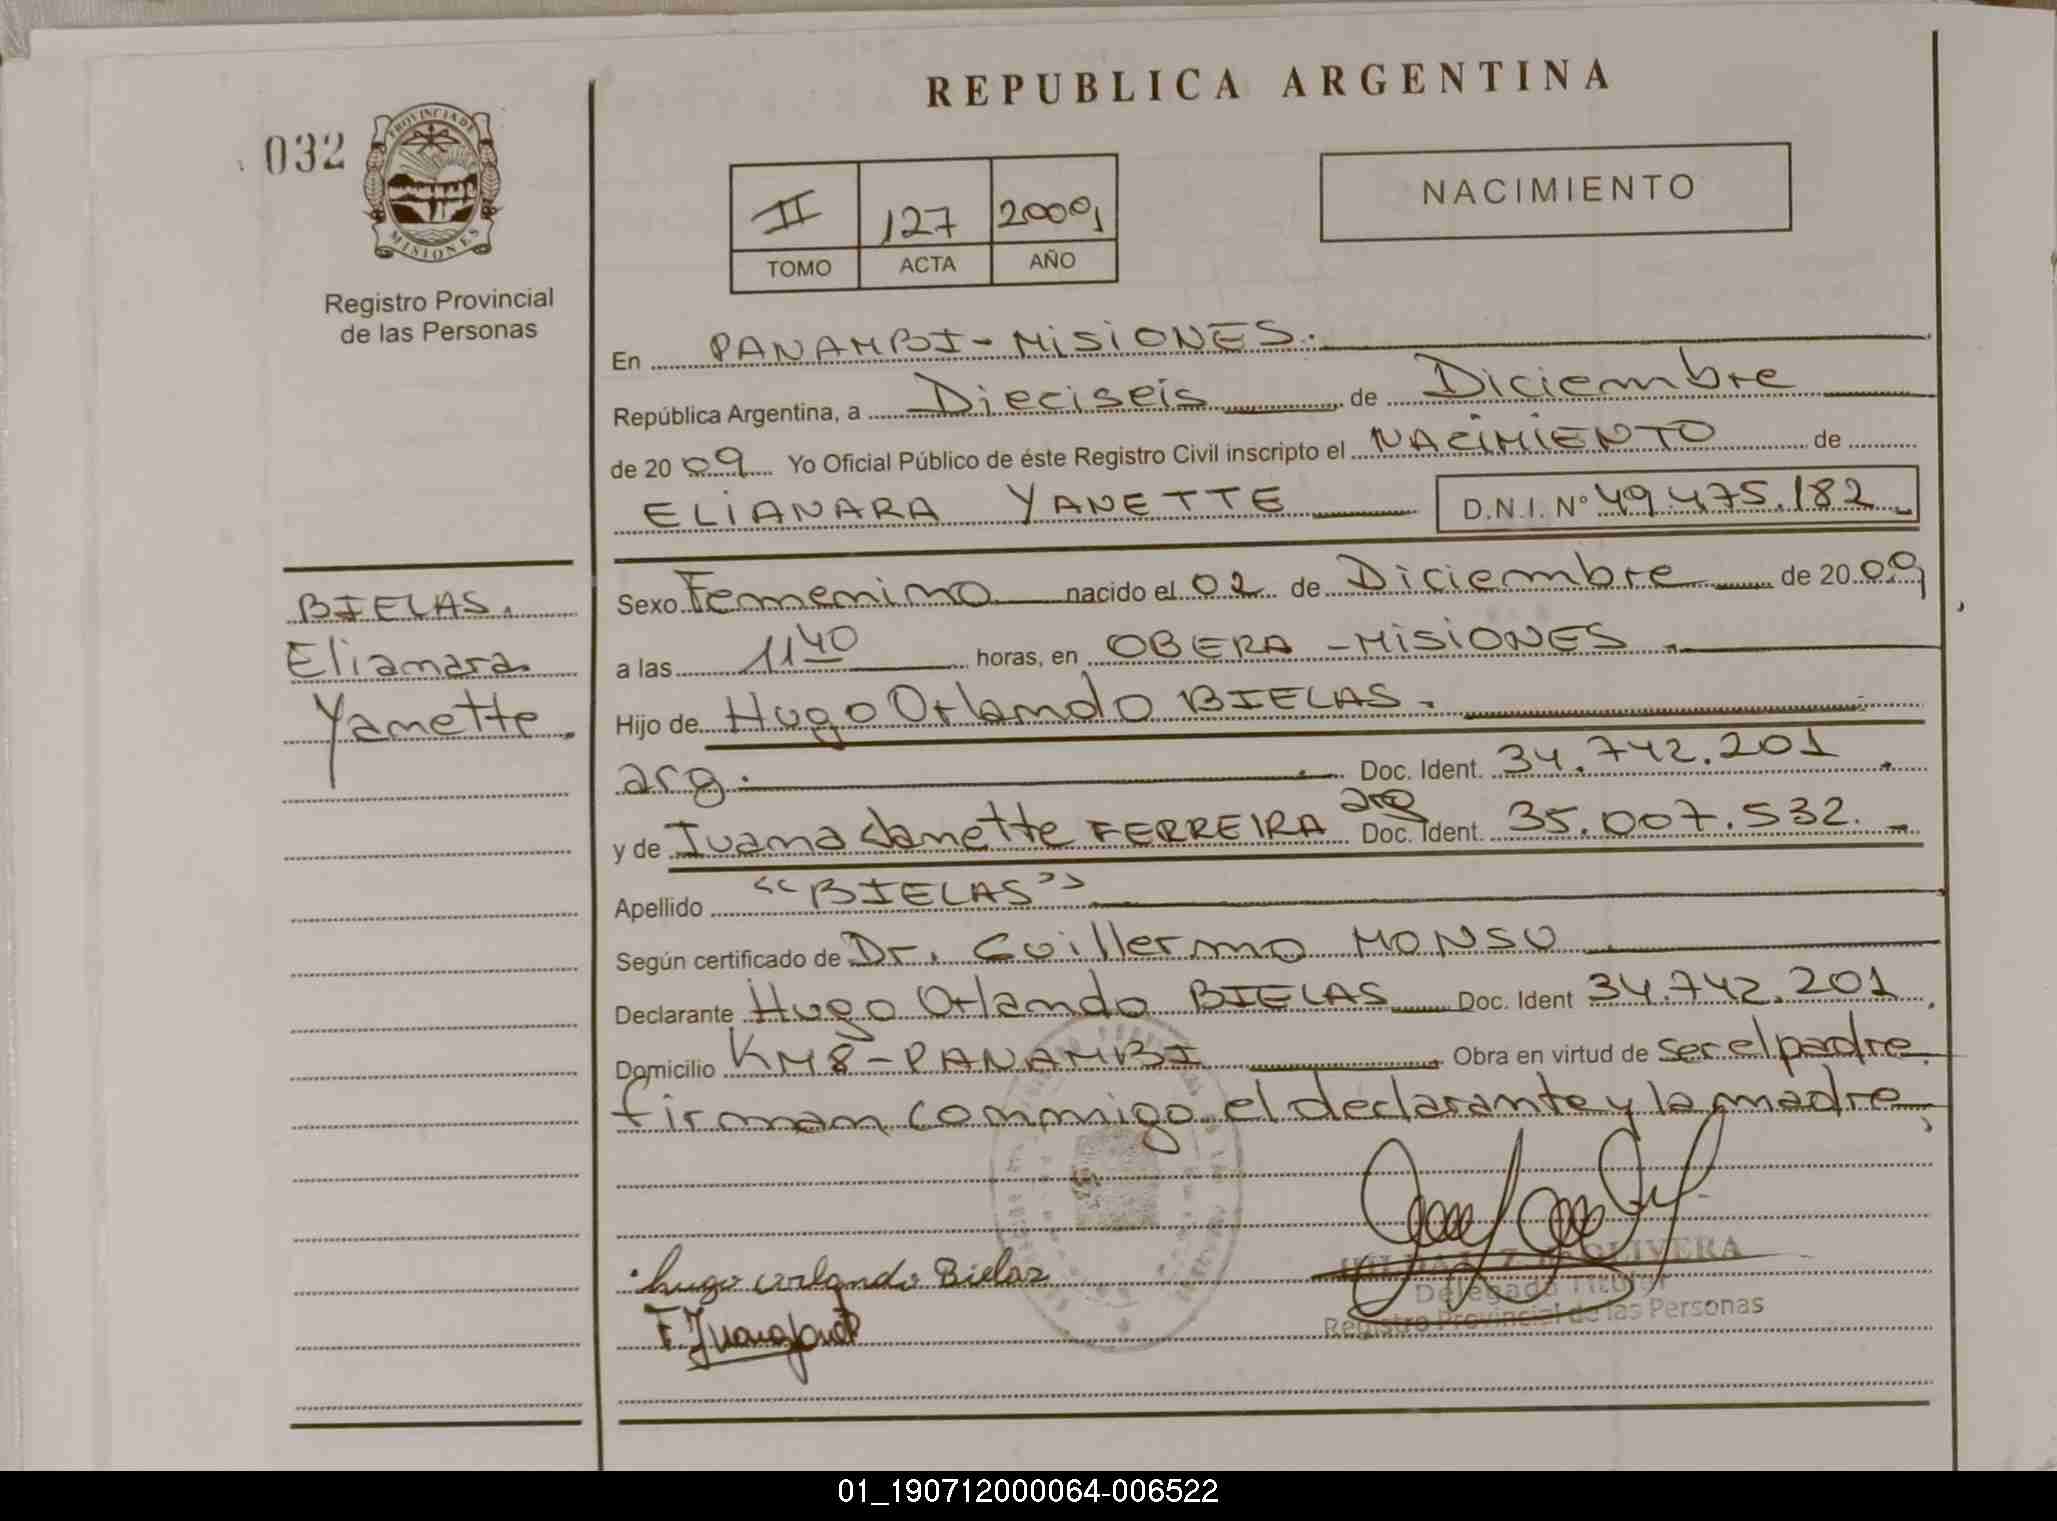 REPUBLICA ARGENTINA
032
PROVINCIA DE
MISIONES
Registro Provincial
de las Personas
NACIMIENTO
II 127 2009
TOMO ACTA AÑO
En PANAMBI - MISIONES.
República Argentina, a Dieciseis de Diciembre
de 2009 Yo Oficial Público de éste Registro Civil inscripto el NACIMIENTO de
ELIANARA YANETTE D.N.I. Nº 49.475.182
BIELAS.
Elianara
Yanette.
Sexo Femenino nacido el 02 de Diciembre de 2009
a las 1140 horas, en OBERA - MISIONES.
Hijo de Hugo Orlando BIELAS.
arg. Doc. Ident. 34.742.201.
y de Juana Janette FERREIRA arg Doc. Ident. 35.007.532.
Apellido "BIELAS"
Según certificado de Dr. Guillermo MONSU
Declarante Hugo Orlando BIELAS Doc. Ident 34.742.201.
Domicilio KM8 - PANAMBI Obra en virtud de ser el padre.
firman conmigo el declarante y la madre.
hugo orlando Bielas
OLIVERA
Delegado Titular
Registro Provincial de las Personas
01_190712000064-006522